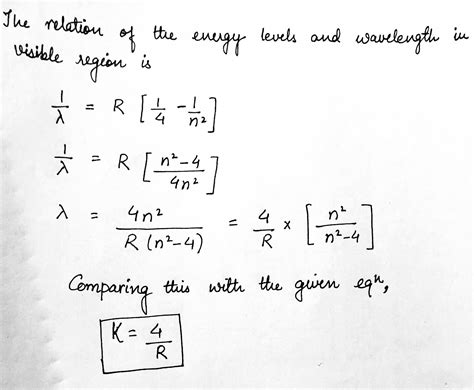 The relation of the energy levels and wavelength in
visible region is
1/λ = R [1/4 - 1/n²]
1/λ = R [(n²-4)/4n²]
λ = 4n²/(R (n²-4)) = 4/R × [n²/(n²-4)]
Comparing this with the given eqⁿ,
K = 4/R